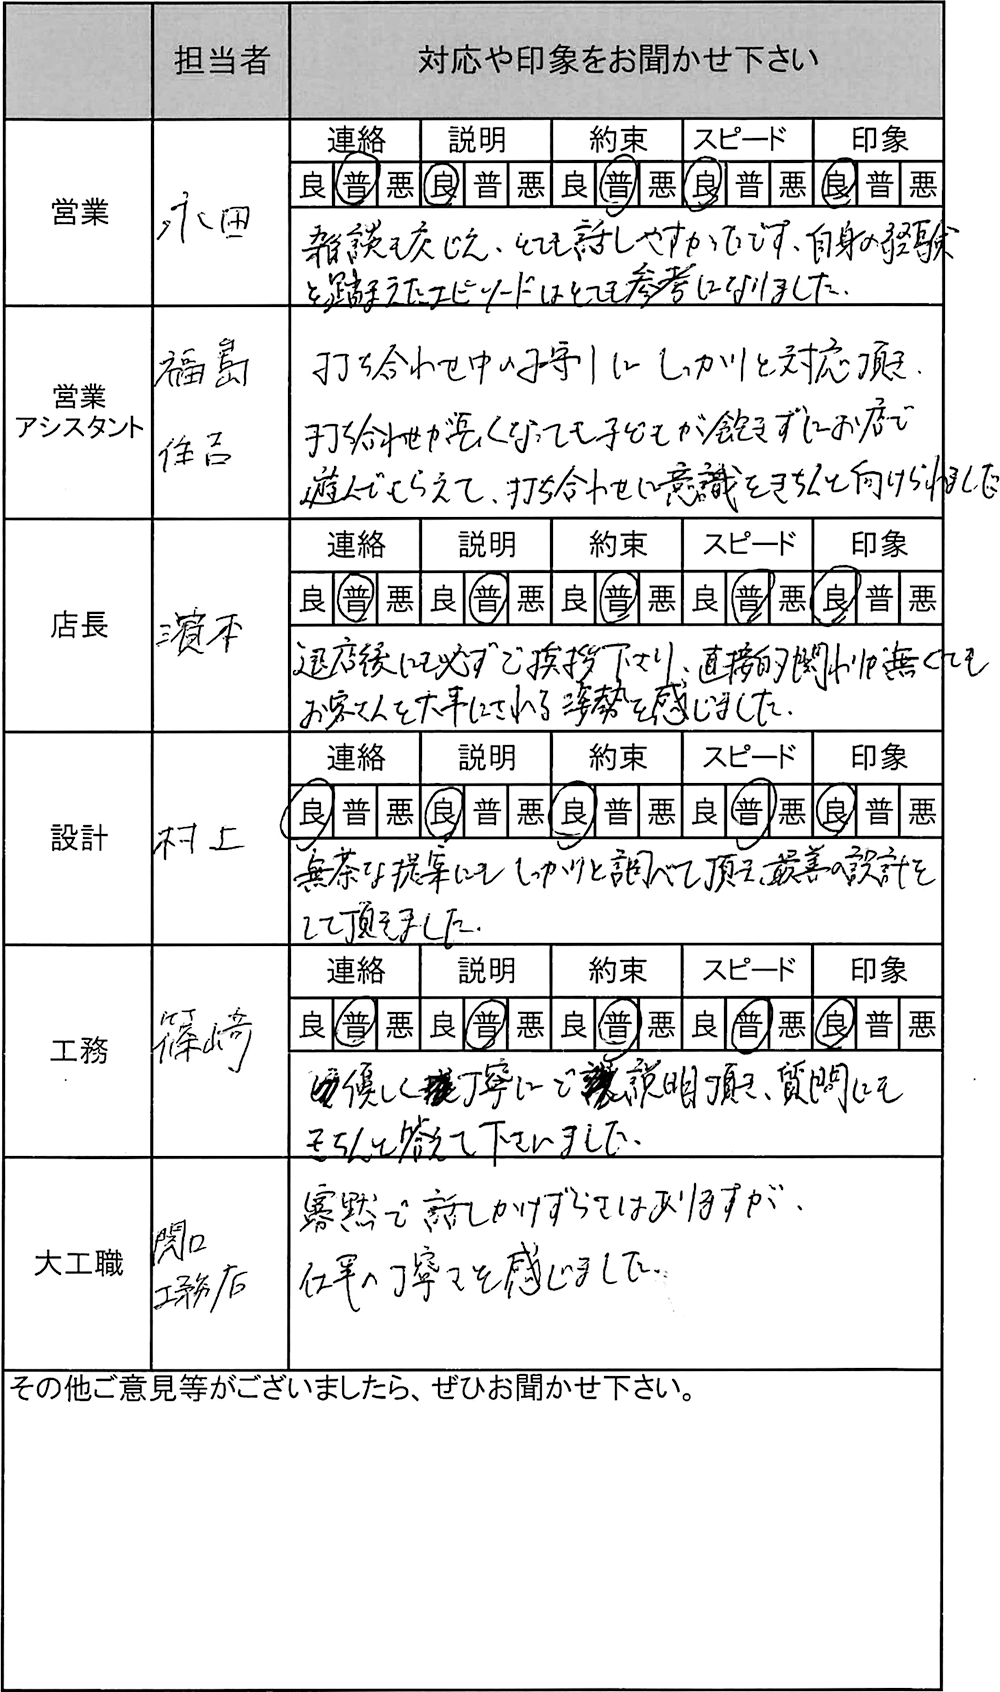 担当者 対応や印象をお聞かせ下さい
営業 永田
連絡 説明 約束 スピード 印象
良 普 悪 良 普 悪 良 普 悪 良 普 悪 良 普 悪
雑談も交じえ、とても話しやすかったです、自身の経験
を踏まえたエピソードはとても参考になりました.
営業
アシスタント
福島
住吉
打ち合わせ中の子守りにしっかりと対応頂き.
打ち合わせが長くなっても子どもが飽きずにお店で
遊んでもらえて、打ち合わせに意識をきちんと向けられました
店長 濱本
連絡 説明 約束 スピード 印象
良 普 悪 良 普 悪 良 普 悪 良 普 悪 良 普 悪
退店後にも必ずご挨拶下さり、直接的関わりが無くても
お客さんを大事にされる姿勢を感じました.
設計 村上
連絡 説明 約束 スピード 印象
良 普 悪 良 普 悪 良 普 悪 良 普 悪 良 普 悪
無茶な提案にもしっかりと調べて頂き、最善の設計を
して頂きました.
工務 篠崎
連絡 説明 約束 スピード 印象
良 普 悪 良 普 悪 良 普 悪 良 普 悪 良 普 悪
優しく丁寧にご説明頂き、質問にも
きちんと答えて下さいました.
大工職
関口
工務店
寡黙で話しかけずらさはありますが、
仕事の丁寧さを感じました.
その他ご意見等がございましたら、ぜひお聞かせ下さい。